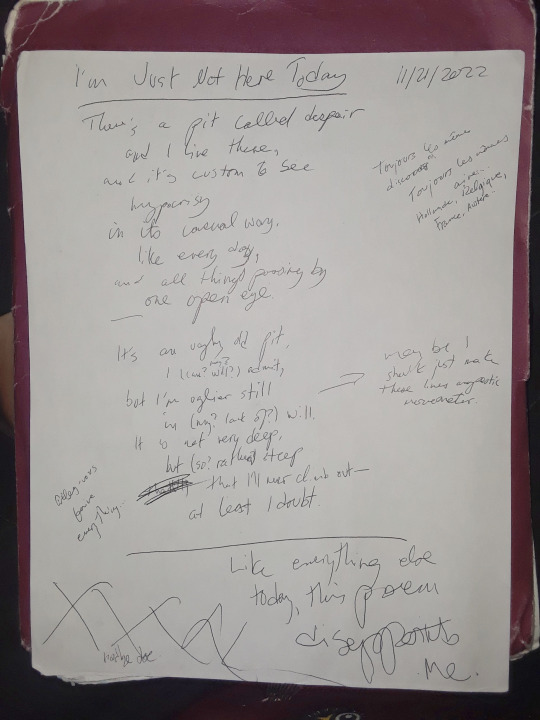 I'm Just Not Here Today 11/21/2022
There's a pit called despair
and I live there,
and it's custom to see
hypocrisy
in its casual way,
like every day,
and all things passing by
one open eye.
Toujours les mêmes
discours
Toujours les mêmes
Hollande, Belgique,
France,
It's an ugly old pit,
I (can? will?) admit,
but I'm uglier still
in (my? lack of?) will.
It is not very deep,
but (so? rather) steep
that I'll never climb out—
at least I doubt.
may be I
should just make
these lines
everything
Like everything else
today, this poem
disappoints
me.